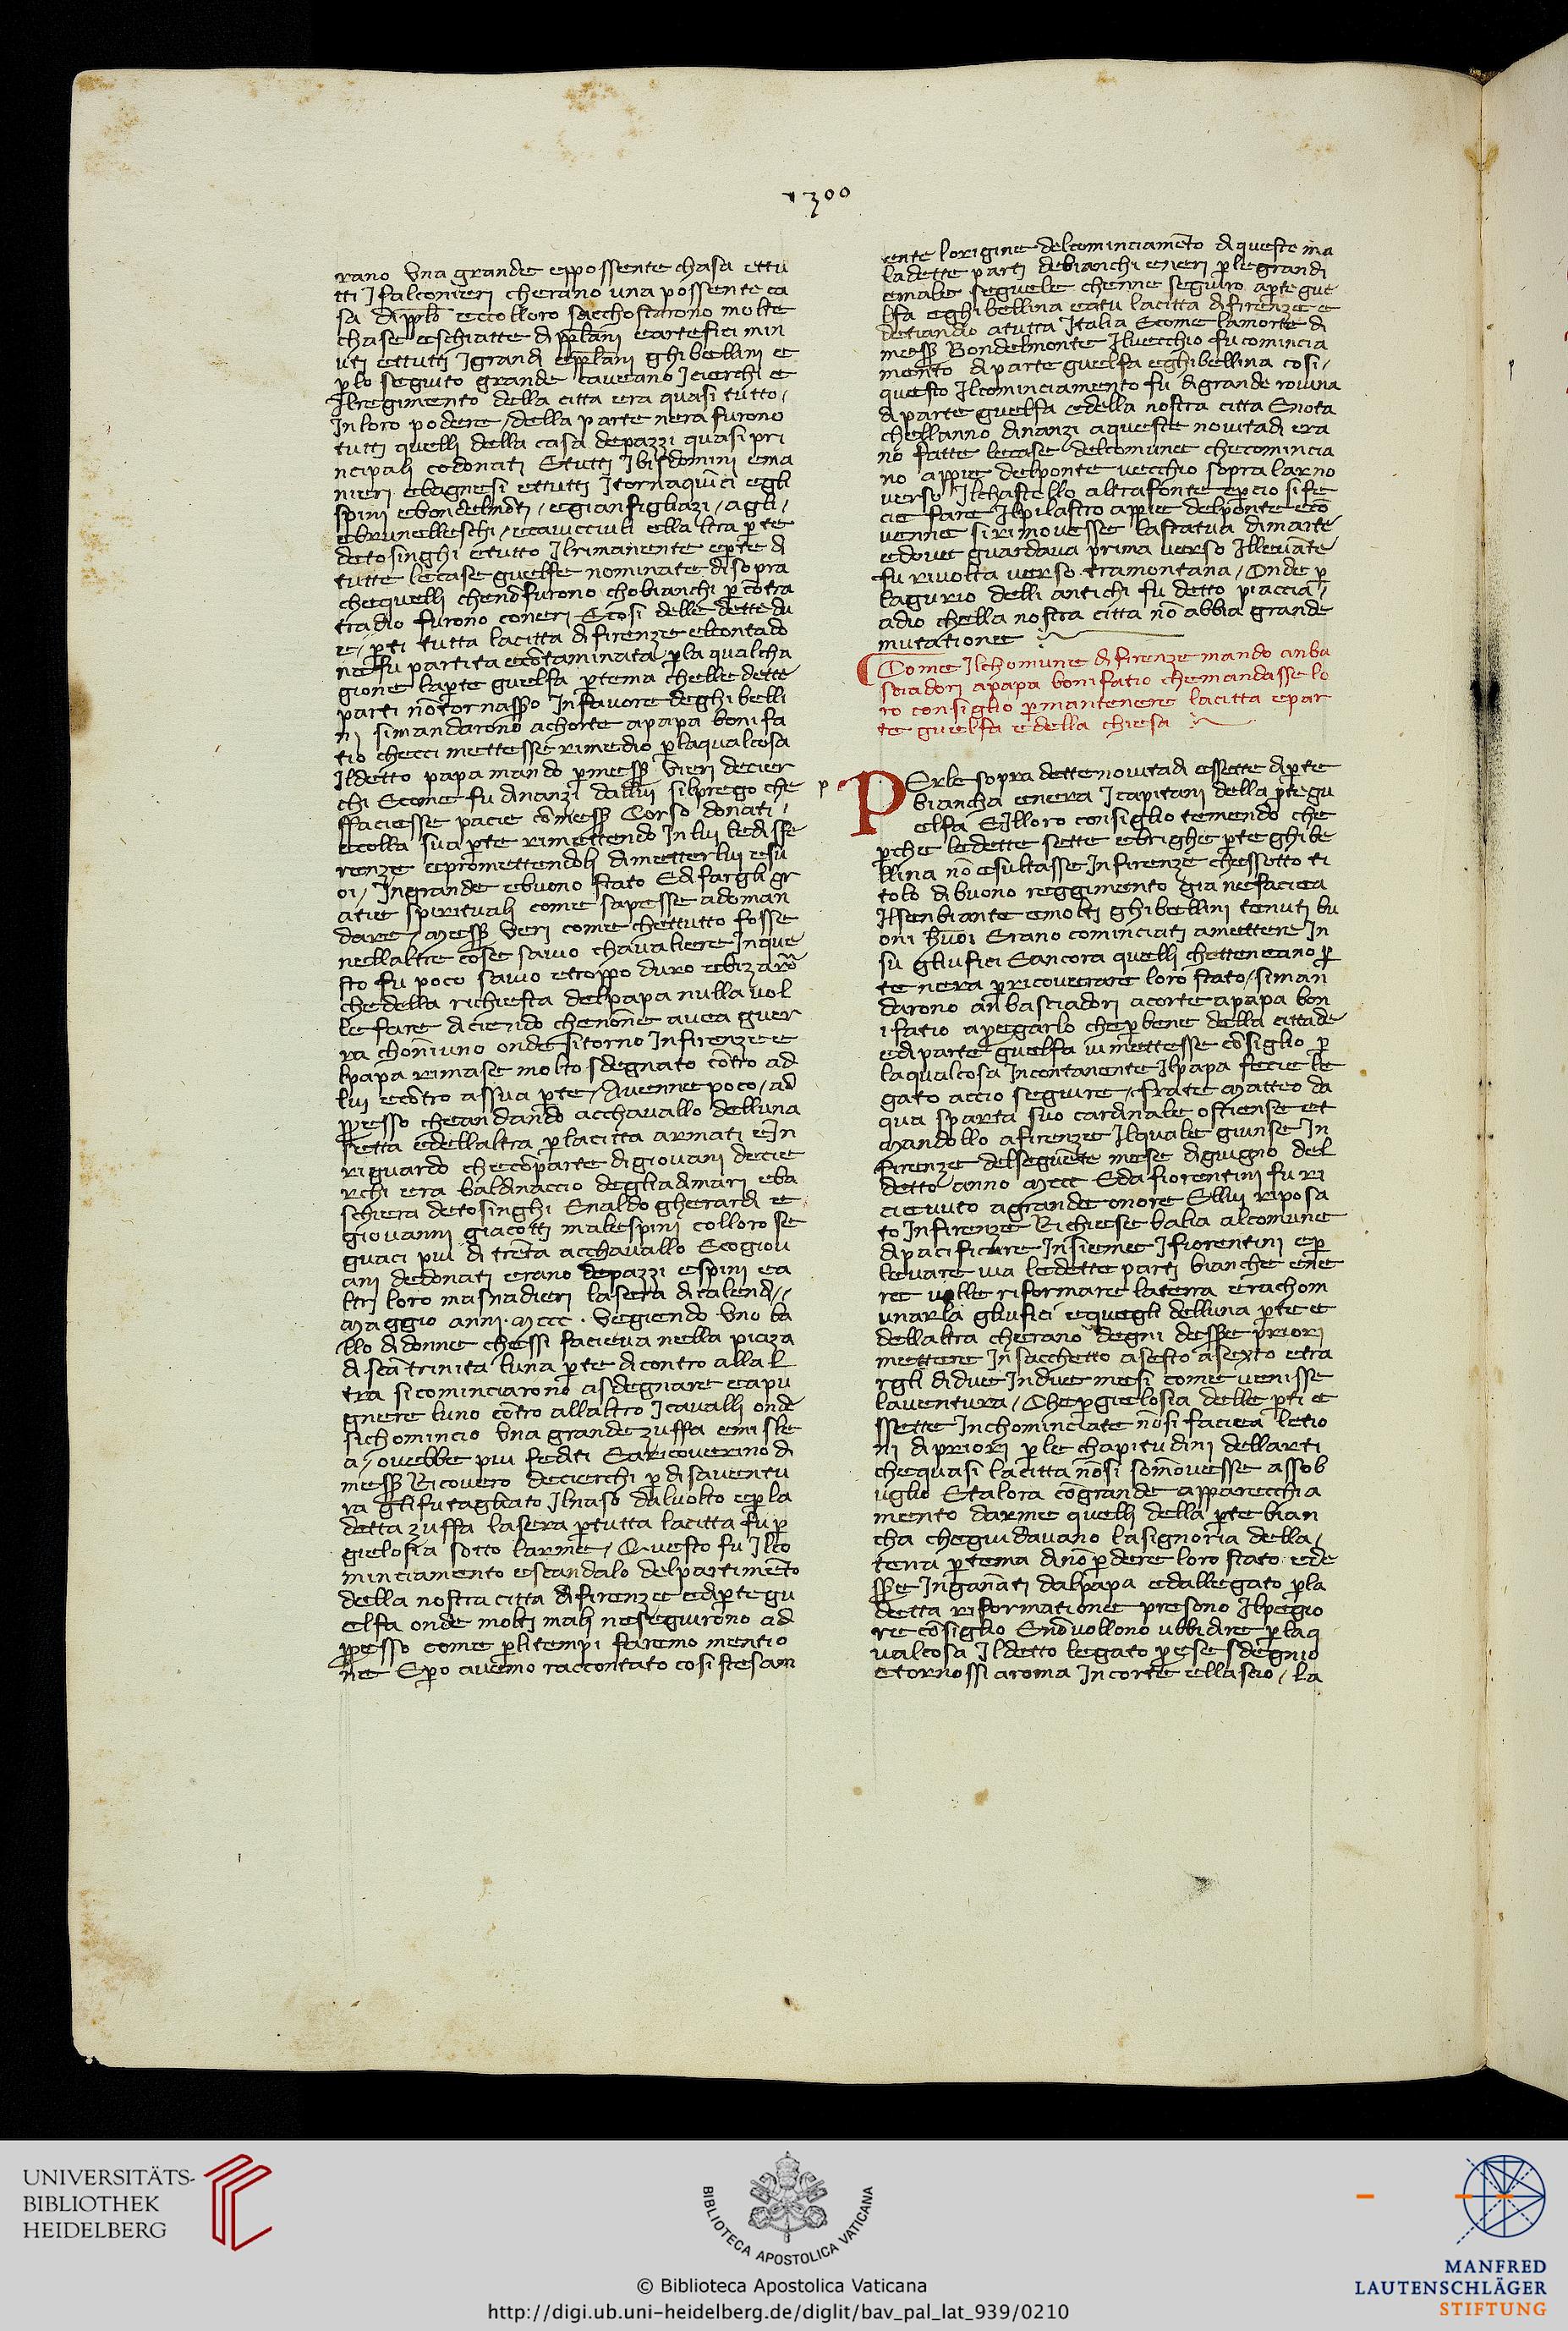 1300
rano una grande eppossente chasa ettu
tti I falconieri cherano una possente ca
sa di pplo eccolloro sacchostarono molte
chase eschiatte di pplani eartefici min
uti ettutti I grandi epplani ghibellini e
plo seguito grande caveano I cierchi e
Ilregimento della citta era quasi tutto /
In loro podere / della parte nera furono
tutti quelli della casa depazzi quasi pri
ncipali codonati Etutti I bisdomini ema
nieri ebagnesi ettutti I tornaquinci egli
spini ebondelmōti / egianfigliazi / agli /
ebrunelleschi / ecaviccivli ella ltra pte
detosinghi etutto Ilrimanente epte di
tutte lecase guelfe nominate disopra
chequelli chenōfurono chobianchi p cōtra
tradio furono coneri Ecosi delle dette du
e / pti tutta lacitta difirenze elcontado
nefu partita ecōtaminata pla qualcha
gione lapte guelfa ptema chelle dette
parti nōtornasso Infavore deghibelli
ni simandarono achorte apapa bonifa
tio checci mettesse rimedio plaqualcosa
Ildetto papa mando pmess Vieri decier
chi Ecome fu dinanzi dallui silprego che
ffaciesse pacie cōmess Corso donati /
ecolla sua pte rimettendo Inlui lediffe
renze epromettendoli dimetterlui esu
oi / Ingrande ebuono stato Edfargli gr
atie spirituali come sapesse adoman
dare / Mess Veri come chettutto fosse
nellaltre cose savio chavaliere Inque
sto fu poco savio etroppo duro ebizaro
chedella richiesta delpapa nulla vol
le fare diciendo chenōne avea guer
ra chonniuno onde sitorno Infirenze e
lpapa rimase molto sdegnato cōtro ad
lui ecōtro assua pte / Avenne poco / ad
ppresso cheandando acchavallo delluna
setta edellaltra placitta armati eIn
riguardo checōparte digiovani decie
rchi era baldinaccio degliadimari eba
schiera detosinghi Enaldo gherardi e
giovanni giacotti malespini colloro se
guaci piu di trēta acchavallo Ecogiou
ani dedonati erano depazzi espini ea
ltri loro masnadieri lasera dicalendi /
Maggio anni . Mccc . Vegiendo Uno ba
llo didonne chessi facieva nella piaza
di scā trinita luna pte dicontro allal
tra sicominciarono asdegnare eapu
gnere luno cōtro allaltro I cavalli onde
sichomincio Una grande zuffa emisle
a / ovebbe piu fediti Earicoverino di
mess Ricovero decierchi p disaventu
ra gli futagliato Ilnaso dalvolto epla
detta zuffa lasera ptutta lacitta fu p
gielosia sotto larme / Questo fu Ilco
minciamento escandalo delpartimēto
della nostra citta difirenze edipte gu
elfa onde molti mali neseguirono ad
ppresso come plitempi faremo mentio
ne Epo avemo raccontato cosi stesam
ente lorigine delcominciamēto diqueste ma
ladette parti debianchi eneri plegrandi
emale seguele chenne seguiro apte gue
lfa eghibellina eatu lacitta difirenze e
detiandio atutta Italia Ecome lamorte di
mess Bondelmonte Ilvecchio fu comincia
mento diparte guelfa eghibellina cosi /
questo Ilcominciamento fu digrande rovina
diparte guelfa edella nostra citta Enota
chellanno dinanzi aqueste novitadi era
no fatte lecase delcomune checomincia
no appie delponte vecchio sopra larno
verso Ilchastello altrafonte epcio sife
cie fare Ilpilastro appie delponte ecō
venne sirimovesse lastatua dimarte
edove guardava prima verso Illevāte
fu rivolta verso tramontana / Onde p
lagurio delli antichi fu detto piaccia /
adio chella nostra citta nō abbia grande
mutatione
Come Ilchomune di firenze mando anba
sciadori apapa bonifatio chemandasse lo
ro consiglio pmantenere lacitta epar
te guelfa edella chiesa
p
PErle sopra dettenovitadi essette dipte
biancha enera I capitani della pte gu
elfa EIlloro consiglio temendo che
pche ledette sette ebrighe pte ghibe
llina nō esultasse Infirenze chessotto ti
tolo dibuono reggimento gia nefaciea
Ilsenbiante emolti ghibellini tenuti bu
oni huoi Erano cominciati amettere In
su gliufici Eancora quelli chetteneano p
te nera pricoverare loro stato / siman
darono anbasciadori acorte apapa bon
ifatio apegarlo chepbene della cittade
edi parte guelfa vi mettesse cōsiglio p
laqualcosa Incontanente Ilpapa fecie le
gato accio seguire / frate Matteo da
qua sparta suo cardinale ostiense et
mandollo afirenze Ilquale giunse In
firenze delseguēte mese digiugno del
detto anno Mccc Eda fiorentini fu ri
cievuto agrande onore Ellui riposa
to Infirenze Richiese balia alcomune
dipacificare Insieme I fiorentini ep
levare via ledette parti bianche ene
re volle riformare laterra erachom
unarla gliufici equegli delluna pte e
dellaltra cherano degni desse priori
mettere In sacchetto asesto asexto etra
rgli didue Indue mesi come venisse
laventura / Che pgielosia delle pti e
ssette Inchominciate nōsi faciea letio
ni dipriori ple chapitudini dellarti
chequasi lacitta nōsi somovesse assob
uglio Etalora cōgrande apparecchia
mento darme quelli della pte bian
cha cheguidavano lasignoria della /
terra ptema dinō pdere loro stato ede
sse Inganati dalpapa edallegato pla
detta riformatione presono Ilpegio
re cōsiglio Enōvollono ubbidire plaq
ualcosa Ildetto legato prese sdegnio
etornossi aroma Incorte ellascio / La
UNIVERSITÄTS-
BIBLIOTHEK
HEIDELBERG
BIBLIOTECA APOSTOLICA VATICANA
© Biblioteca Apostolica Vaticana
http://digi.ub.uni-heidelberg.de/diglit/bav_pal_lat_939/0210
MANFRED
LAUTENSCHLÄGER
STIFTUNG